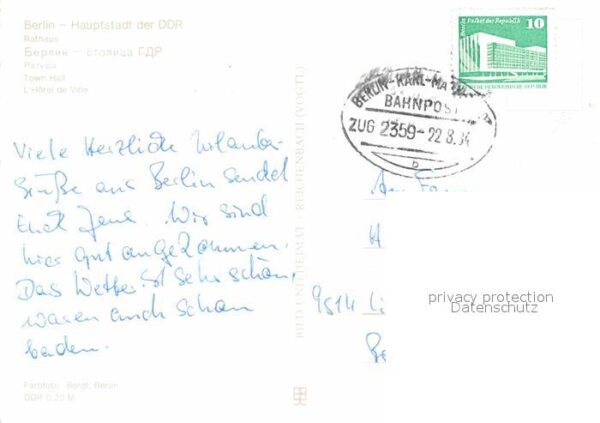 Berlin – Hauptstadt der DDR
Rathaus
Берлин – столица ГДР
Ратуша
Town Hall
L'Hôtel de Ville
Viele Herzliche Urlaubs-
grüße aus Berlin sendet
Euch Jens. Wir sind
hier gut angekommen.
Das Wetter ist sehr schön,
waren auch schon
baden.
Farbfoto: Beldt, Berlin
DDR 0,20 M
BILD UND HEIMAT · REICHENBACH (VOGTL)
Berlin, Palast der Republik
10
DEUTSCHE DEMOKRATISCHE REPUBLIK
BERLIN-KARL-MA
BAHNPOST
ZUG 2359-22.8.84
b
An Fam
H
9514 Li
privacy protection
Datenschutz